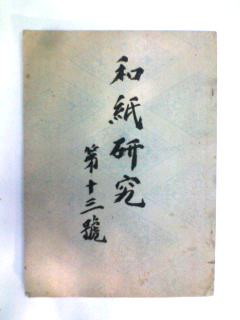 和紙研究
第十三號